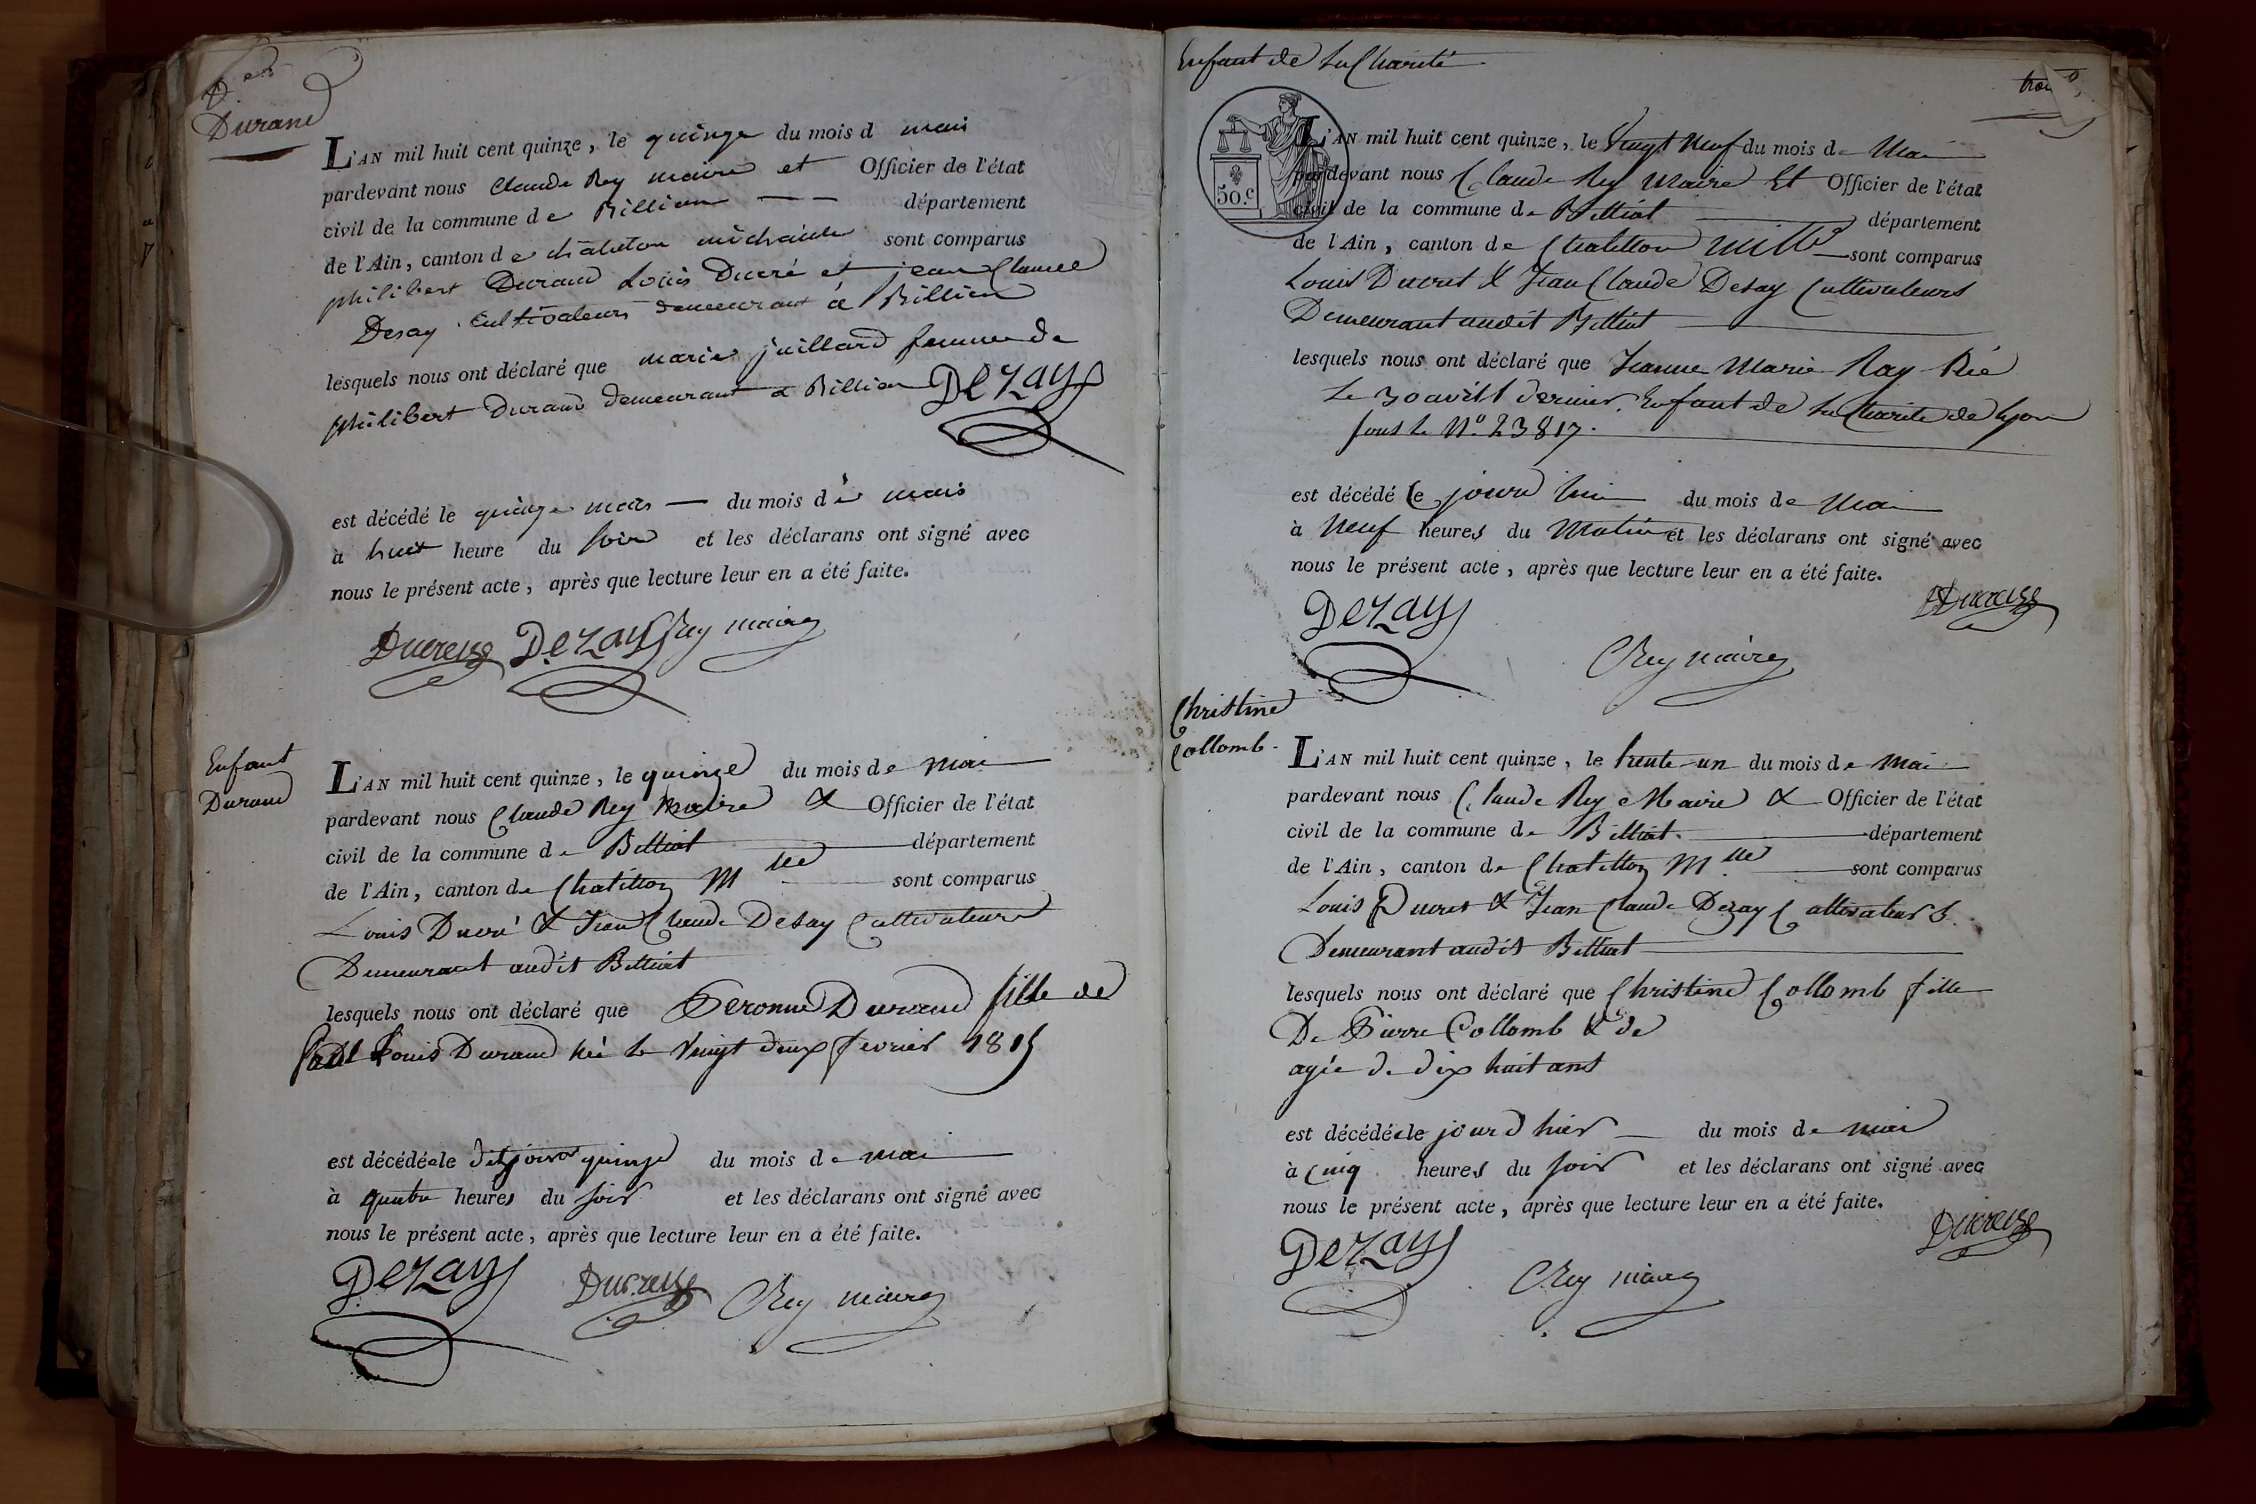 Durand
L'AN mil huit cent quinze, le quinze du mois d mais
pardevant nous Claude Rey maire et Officier de l'état
civil de la commune de Billiau — — département
de l'Ain, canton de châtelon michaille sont comparus
philibert Durand Louis Ducré et jean Claude
Desay Cultivateurs demeurant à Billiau
lesquels nous ont déclaré que marie juillard femme de
philibert Durand demeurant a Billiau DEZAY
est décédé le quinze mais — du mois de mais
à huit heure du soir et les déclarans ont signé avec
nous le présent acte, après que lecture leur en a été faite.
DEZAY Rey maire
Enfant
Durand
L'AN mil huit cent quinze, le quinze du mois de mai
pardevant nous Claude Rey Maire & Officier de l'état
civil de la commune de Billiat département
de l'Ain, canton de Chatillon M lle sont comparus
Louis Ducré & Jean Claude Desay Cultivateurs
Demeurant audit Billiat
lesquels nous ont déclaré que Peronne Durand fille de
Louis Durand né le Vingt deux fevrier 1815
est décédée le quinze du mois de mai
à quatre heures du soir et les déclarans ont signé avec
nous le présent acte, après que lecture leur en a été faite.
DEZAY CRey maire
Enfant de la Charité
50.c
L'AN mil huit cent quinze, le Vingt Neuf du mois de Mai
pardevant nous Claude Rey Maire Et Officier de l'état
civil de la commune de Billiat département
de l'Ain, canton de Chatillon Mille sont comparus
Louis Ducret & Jean Claude Desay Cultivateurs
Demeurant audit Billiat
lesquels nous ont déclaré que Jeanne Marie Ray Née
Le 30 avril dernier, Enfant de la Charité de Lyon
sous le N° 23817.
est décédé le jourd hui du mois de Mai
à Neuf heures du Matin et les déclarans ont signé avec
nous le présent acte, après que lecture leur en a été faite.
DEZAY
CRey maire
Christine
Collomb.
L'AN mil huit cent quinze, le trente-un du mois de mai
pardevant nous Claude Rey Maire & Officier de l'état
civil de la commune de Billiat. département
de l'Ain, canton de Chatillon M. lle sont comparus
Louis Ducret & Jean Claude Dezay Cultivateurs
Demeurant audit Billiat
lesquels nous ont déclaré que Christine Collomb fille
De Pierre Collomb & de
agée de dix huit ans
est décédée le jour d hier — du mois de mai
à Cinq heures du soir et les déclarans ont signé avec
nous le présent acte, après que lecture leur en a été faite.
DEZAY
CRey maire